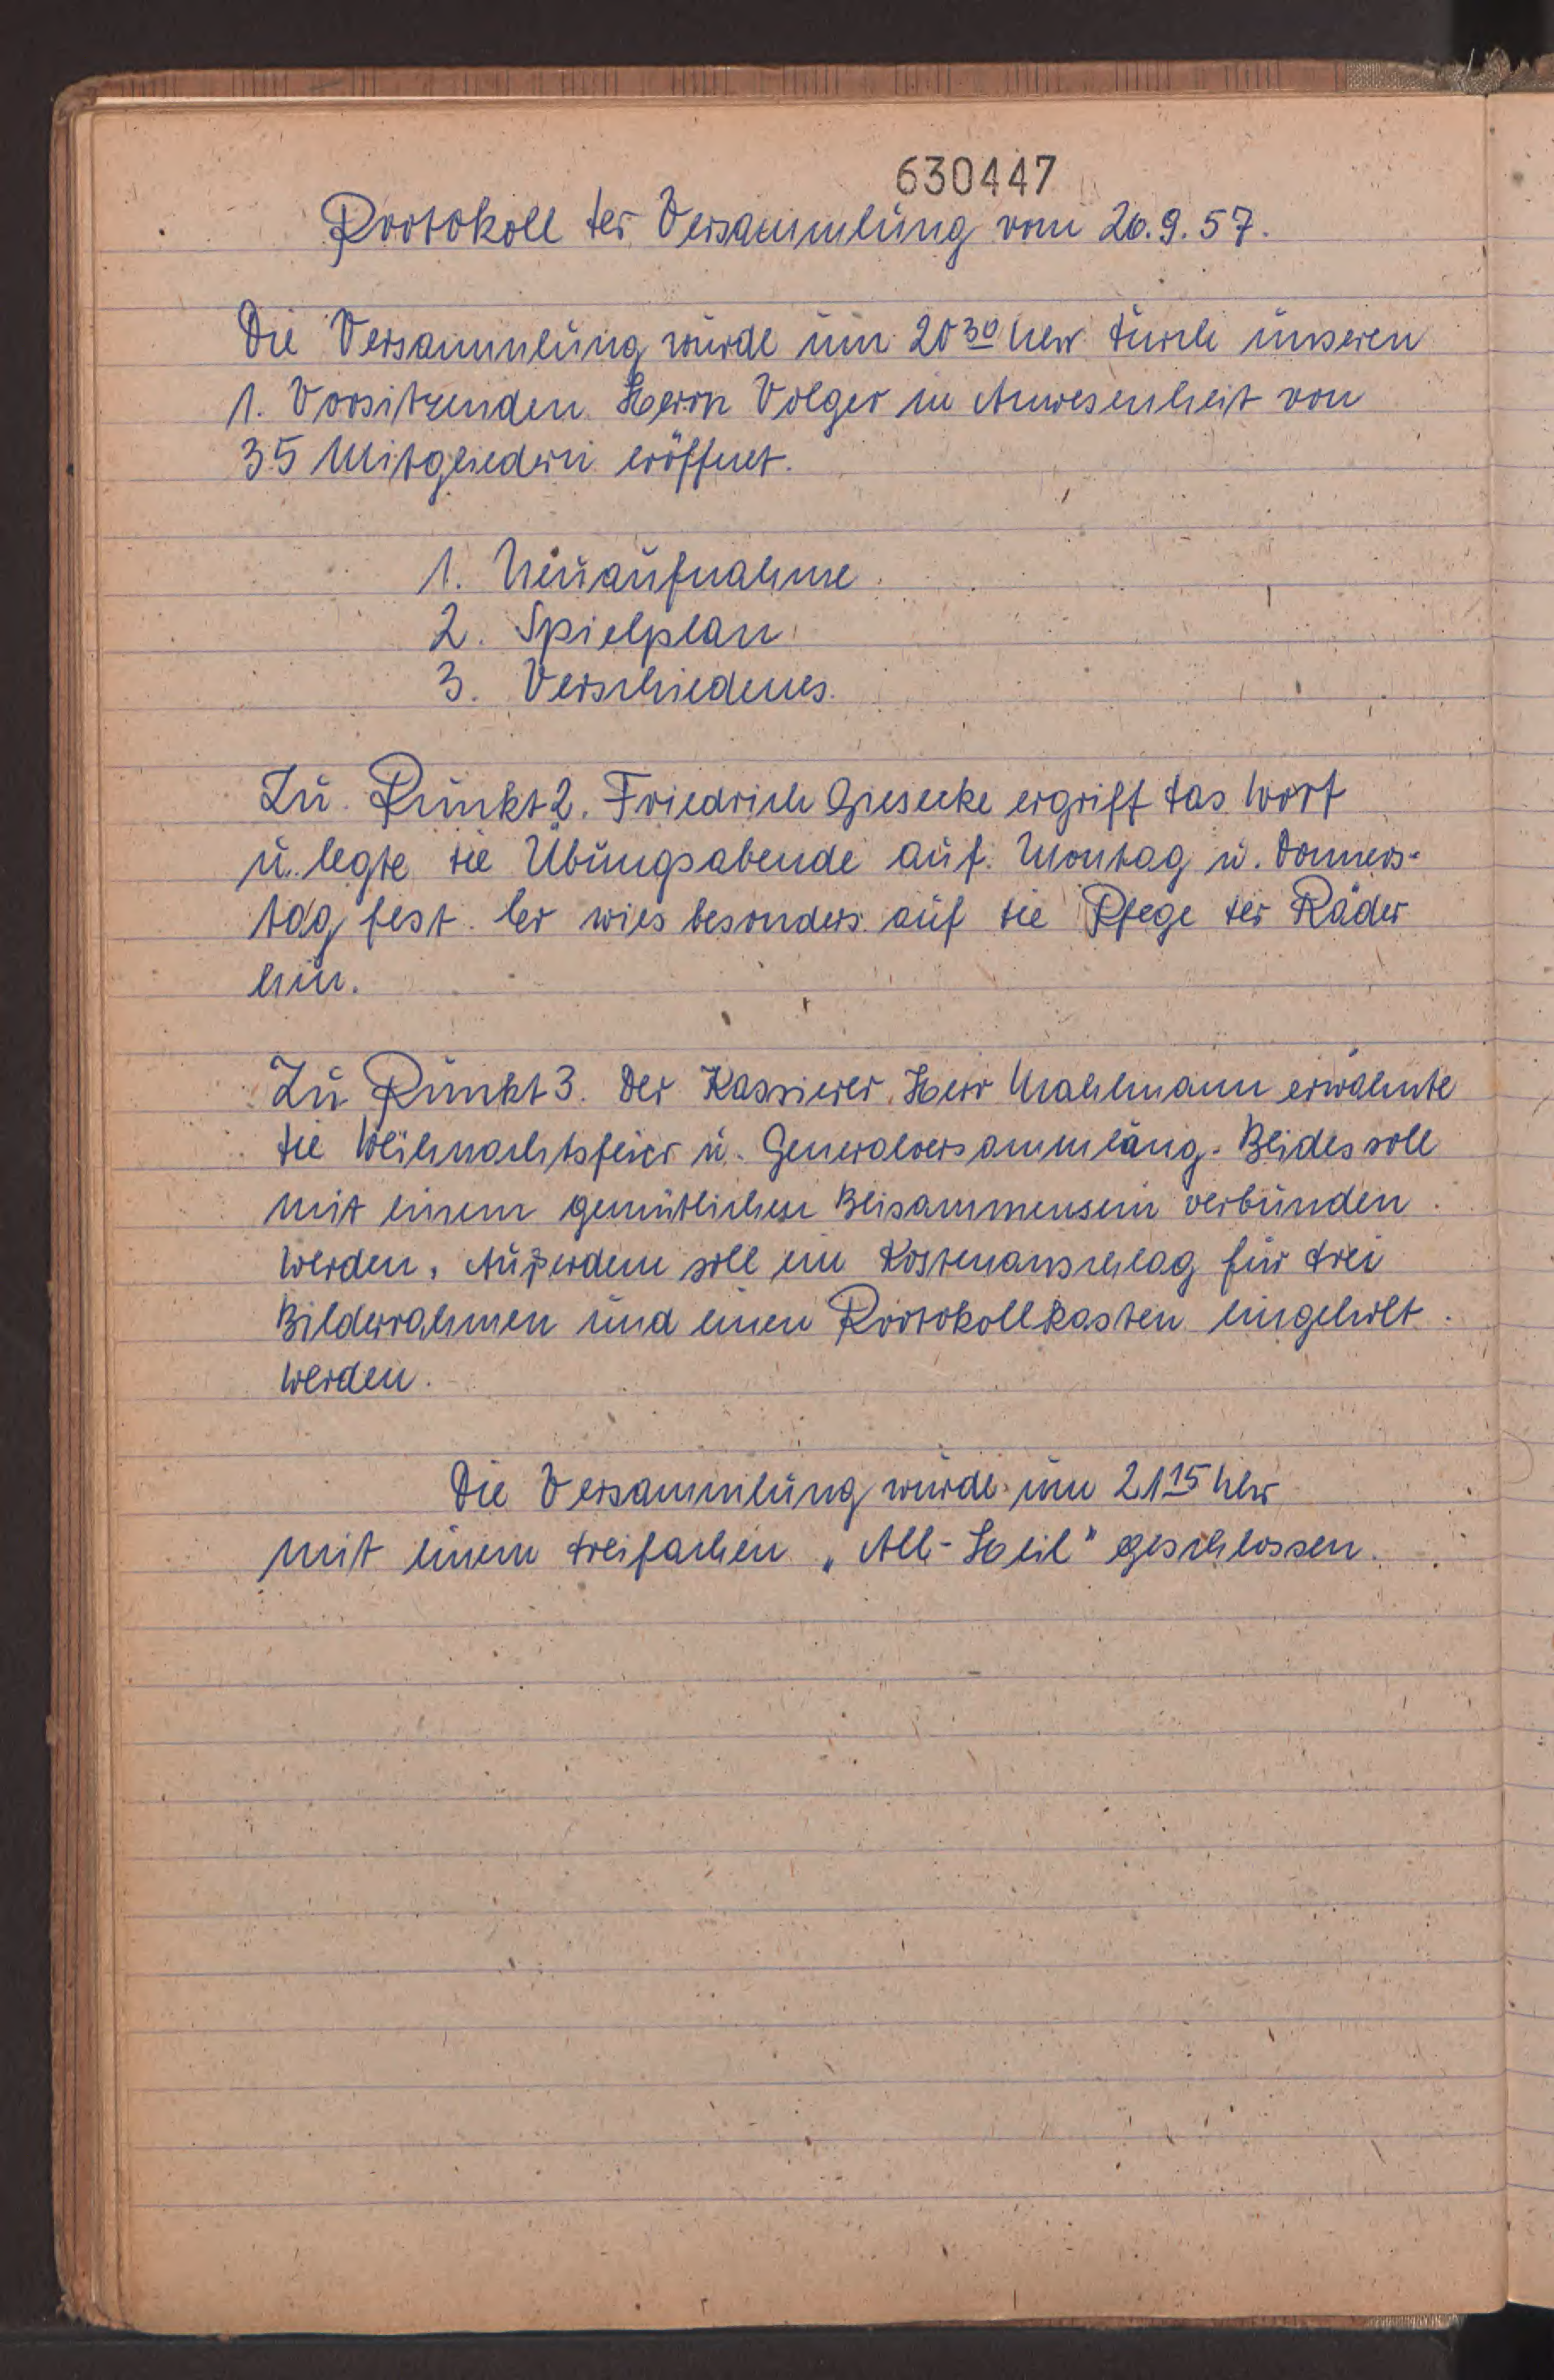 630447
Protokoll der Versammlung vom 26.9.57.
Die Versammlung wurde um 20³⁰ Uhr durch unseren
1. Vorsitzenden Herrn Volger in Anwesenheit von
35 Mitgliedern eröffnet.
1. Neuaufnahme
2. Spielplan
3. Verschiedenes.
Zu Punkt 2. Friedrich Giesecke ergriff das Wort
u. legte die Übungsabende auf Montag u. Donners-
tag fest. Er wies besonders auf die Pfege der Räder
hin.
Zu Punkt 3. Der Kassierer, Herr Mahlmann erwähnte
die Weihnachtsfeier u. Generalversammlung. Beides soll
mit einem gemütlichen Beisammensein verbunden
werden. Außerdem soll ein Kostenanschlag für drei
Bilderrahmen und einen Protokollkasten eingeholt
werden.
Die Versammlung wurde um 21¹⁵ Uhr
mit einem dreifachen „All-Heil" geschlossen.